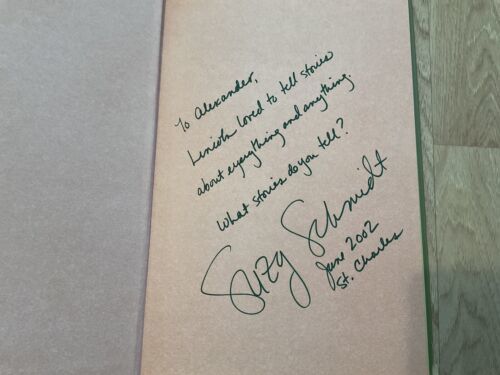 To Alexander,
Lincoln loved to tell stories
about everything and anything.
What stories do you tell?
Suzy Schmidt
June 2002
St. Charles